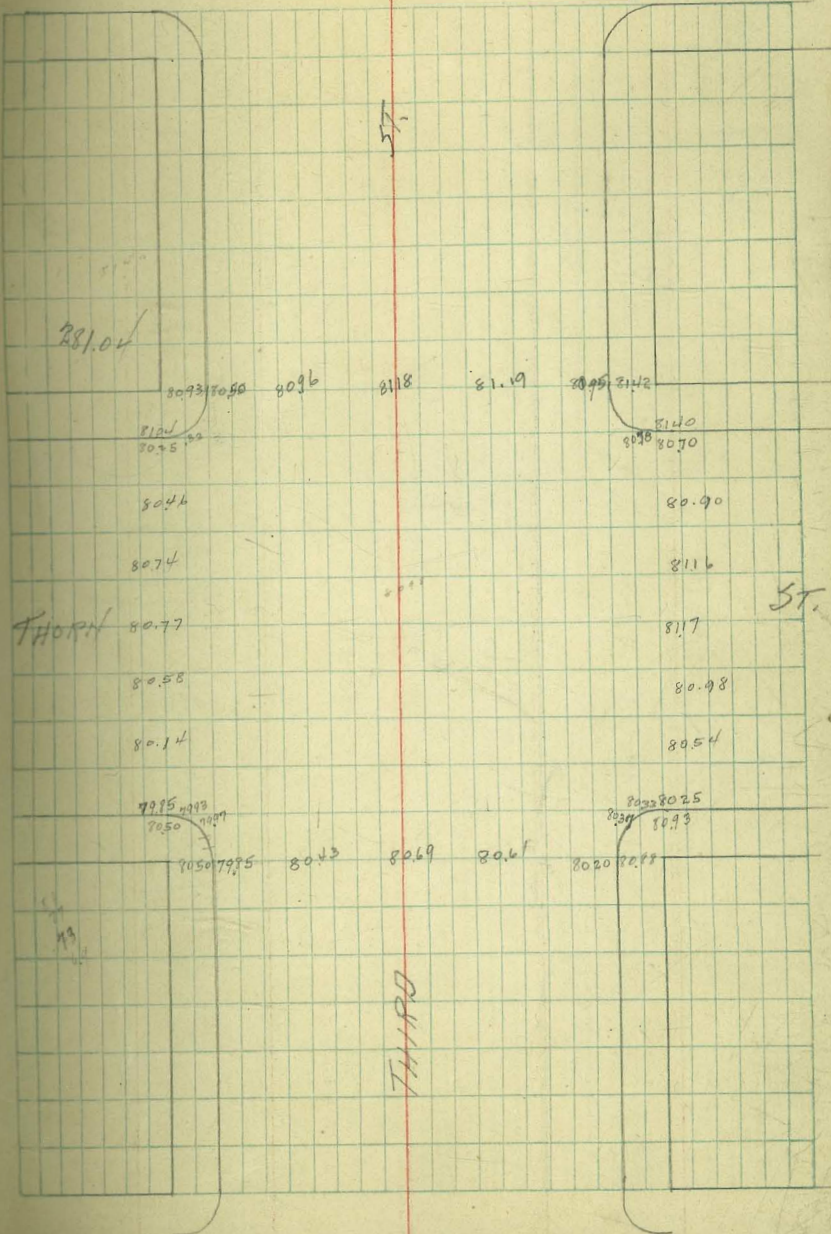 ST.
281.04
80.93 80.50 80.96 81.18 81.19 80.95 81.42
81.04 81.40
80.35 .33 80.70
80.46 80.90
80.74 81.16
ST.
THORN 80.77 81.17
80.58 80.98
80.14 80.54
79.85 79.93 80.33 80.25
80.50 79.97 80.37 80.93
80.50 79.85 80.43 80.69 80.61 80.20 80.88
THIRD